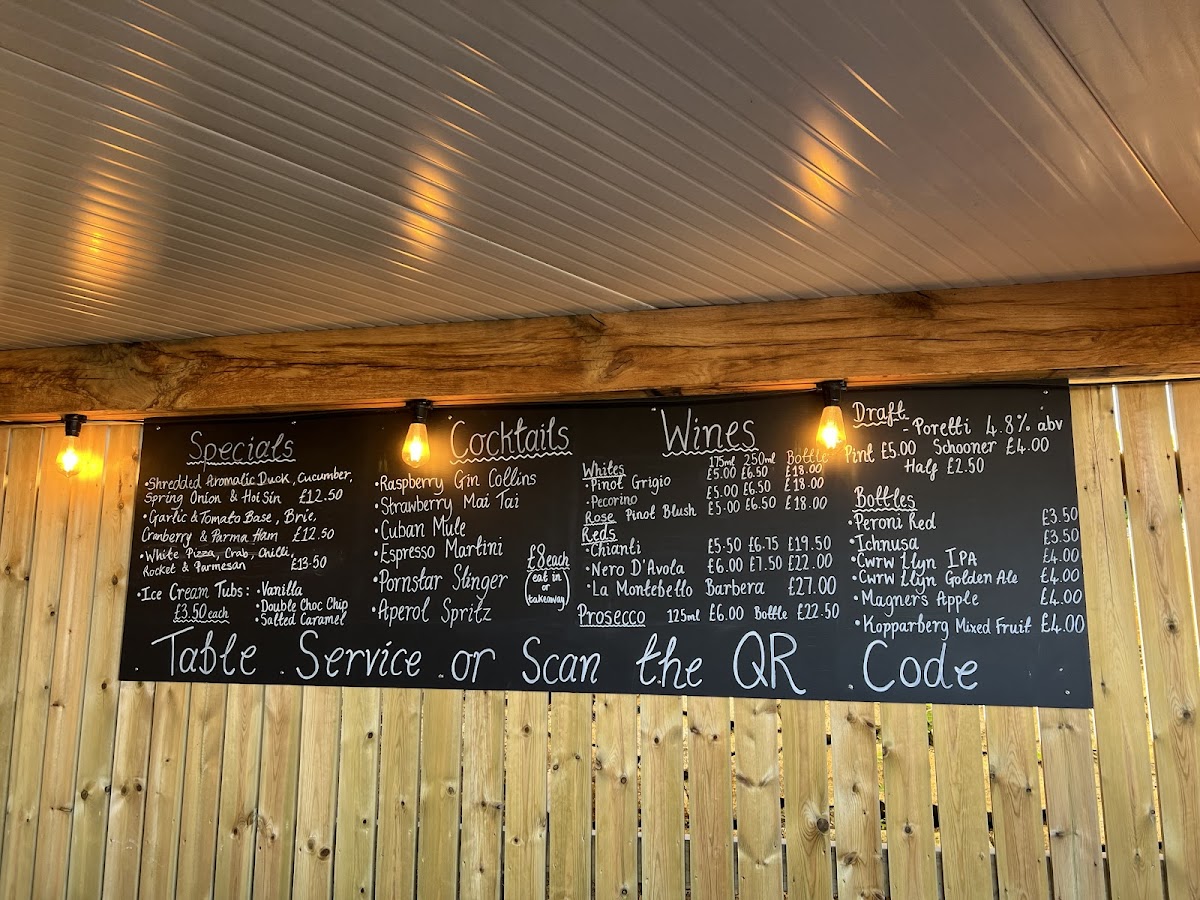 Specials
•Shredded Aromatic Duck, Cucumber,
Spring Onion & Hoi Sin £12.50
•Garlic & Tomato Base, Brie,
Cranberry & Parma Ham £12.50
•White Pizza, Crab, Chilli,
Rocket & Parmesan £13.50
•Ice Cream Tubs: •Vanilla
£3.50 each •Double Choc Chip
•Salted Caramel
Cocktails
•Raspberry Gin Collins
•Strawberry Mai Tai
•Cuban Mule
•Espresso Martini
•Pornstar Slinger
•Aperol Spritz
£8 each
(eat in
or
takeaway)
Wines
Whites 175ml 250ml Bottle
•Pinot Grigio £5.00 £6.50 £18.00
•Pecorino £5.00 £6.50 £18.00
Rose Pinot Blush £5.00 £6.50 £18.00
Reds
•Chianti £5.50 £6.75 £19.50
•Nero D'Avola £6.00 £7.50 £22.00
•La Montebello Barbera £27.00
Prosecco 125ml £6.00 Bottle £22.50
Draft
-Poretti 4.8% abv
Pint £5.00 Schooner £4.00
Half £2.50
Bottles
•Peroni Red £3.50
•Ichnusa £3.50
•Cwrw Llyn IPA £4.00
•Cwrw Llyn Golden Ale £4.00
•Magners Apple £4.00
•Kopparberg Mixed Fruit £4.00
Table Service or Scan the QR Code